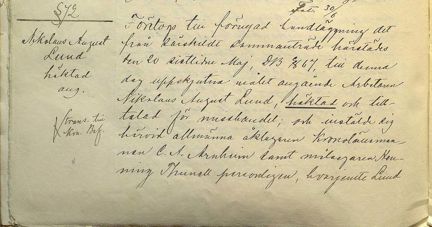 §72
Nikolaus August
Lund
häktad
ang.
Företogs till förnyad handläggning det
från särskildt sammanträde härstädes
den 20 sistlidne Maj, § 67, till denna
dag uppskjutna målet angående Arbetaren
Nikolaus August Lund, häktad och till-
talad för misshandel; och inställde sig
härvid allmänna åklagaren Kronolänsman-
nen C. A. samt målsegaren Hen-
ning personligen, hvarjemte Lund